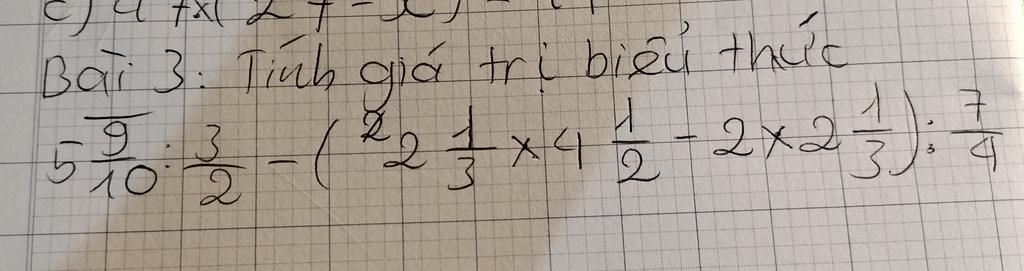 c) 4 + x(
Bài 3: Tính giá trị biểu thức
5 9/10 : 3/2 - ( 2 2 1/3 × 4 1/2 - 2 × 2 1/3 ) : 7/4